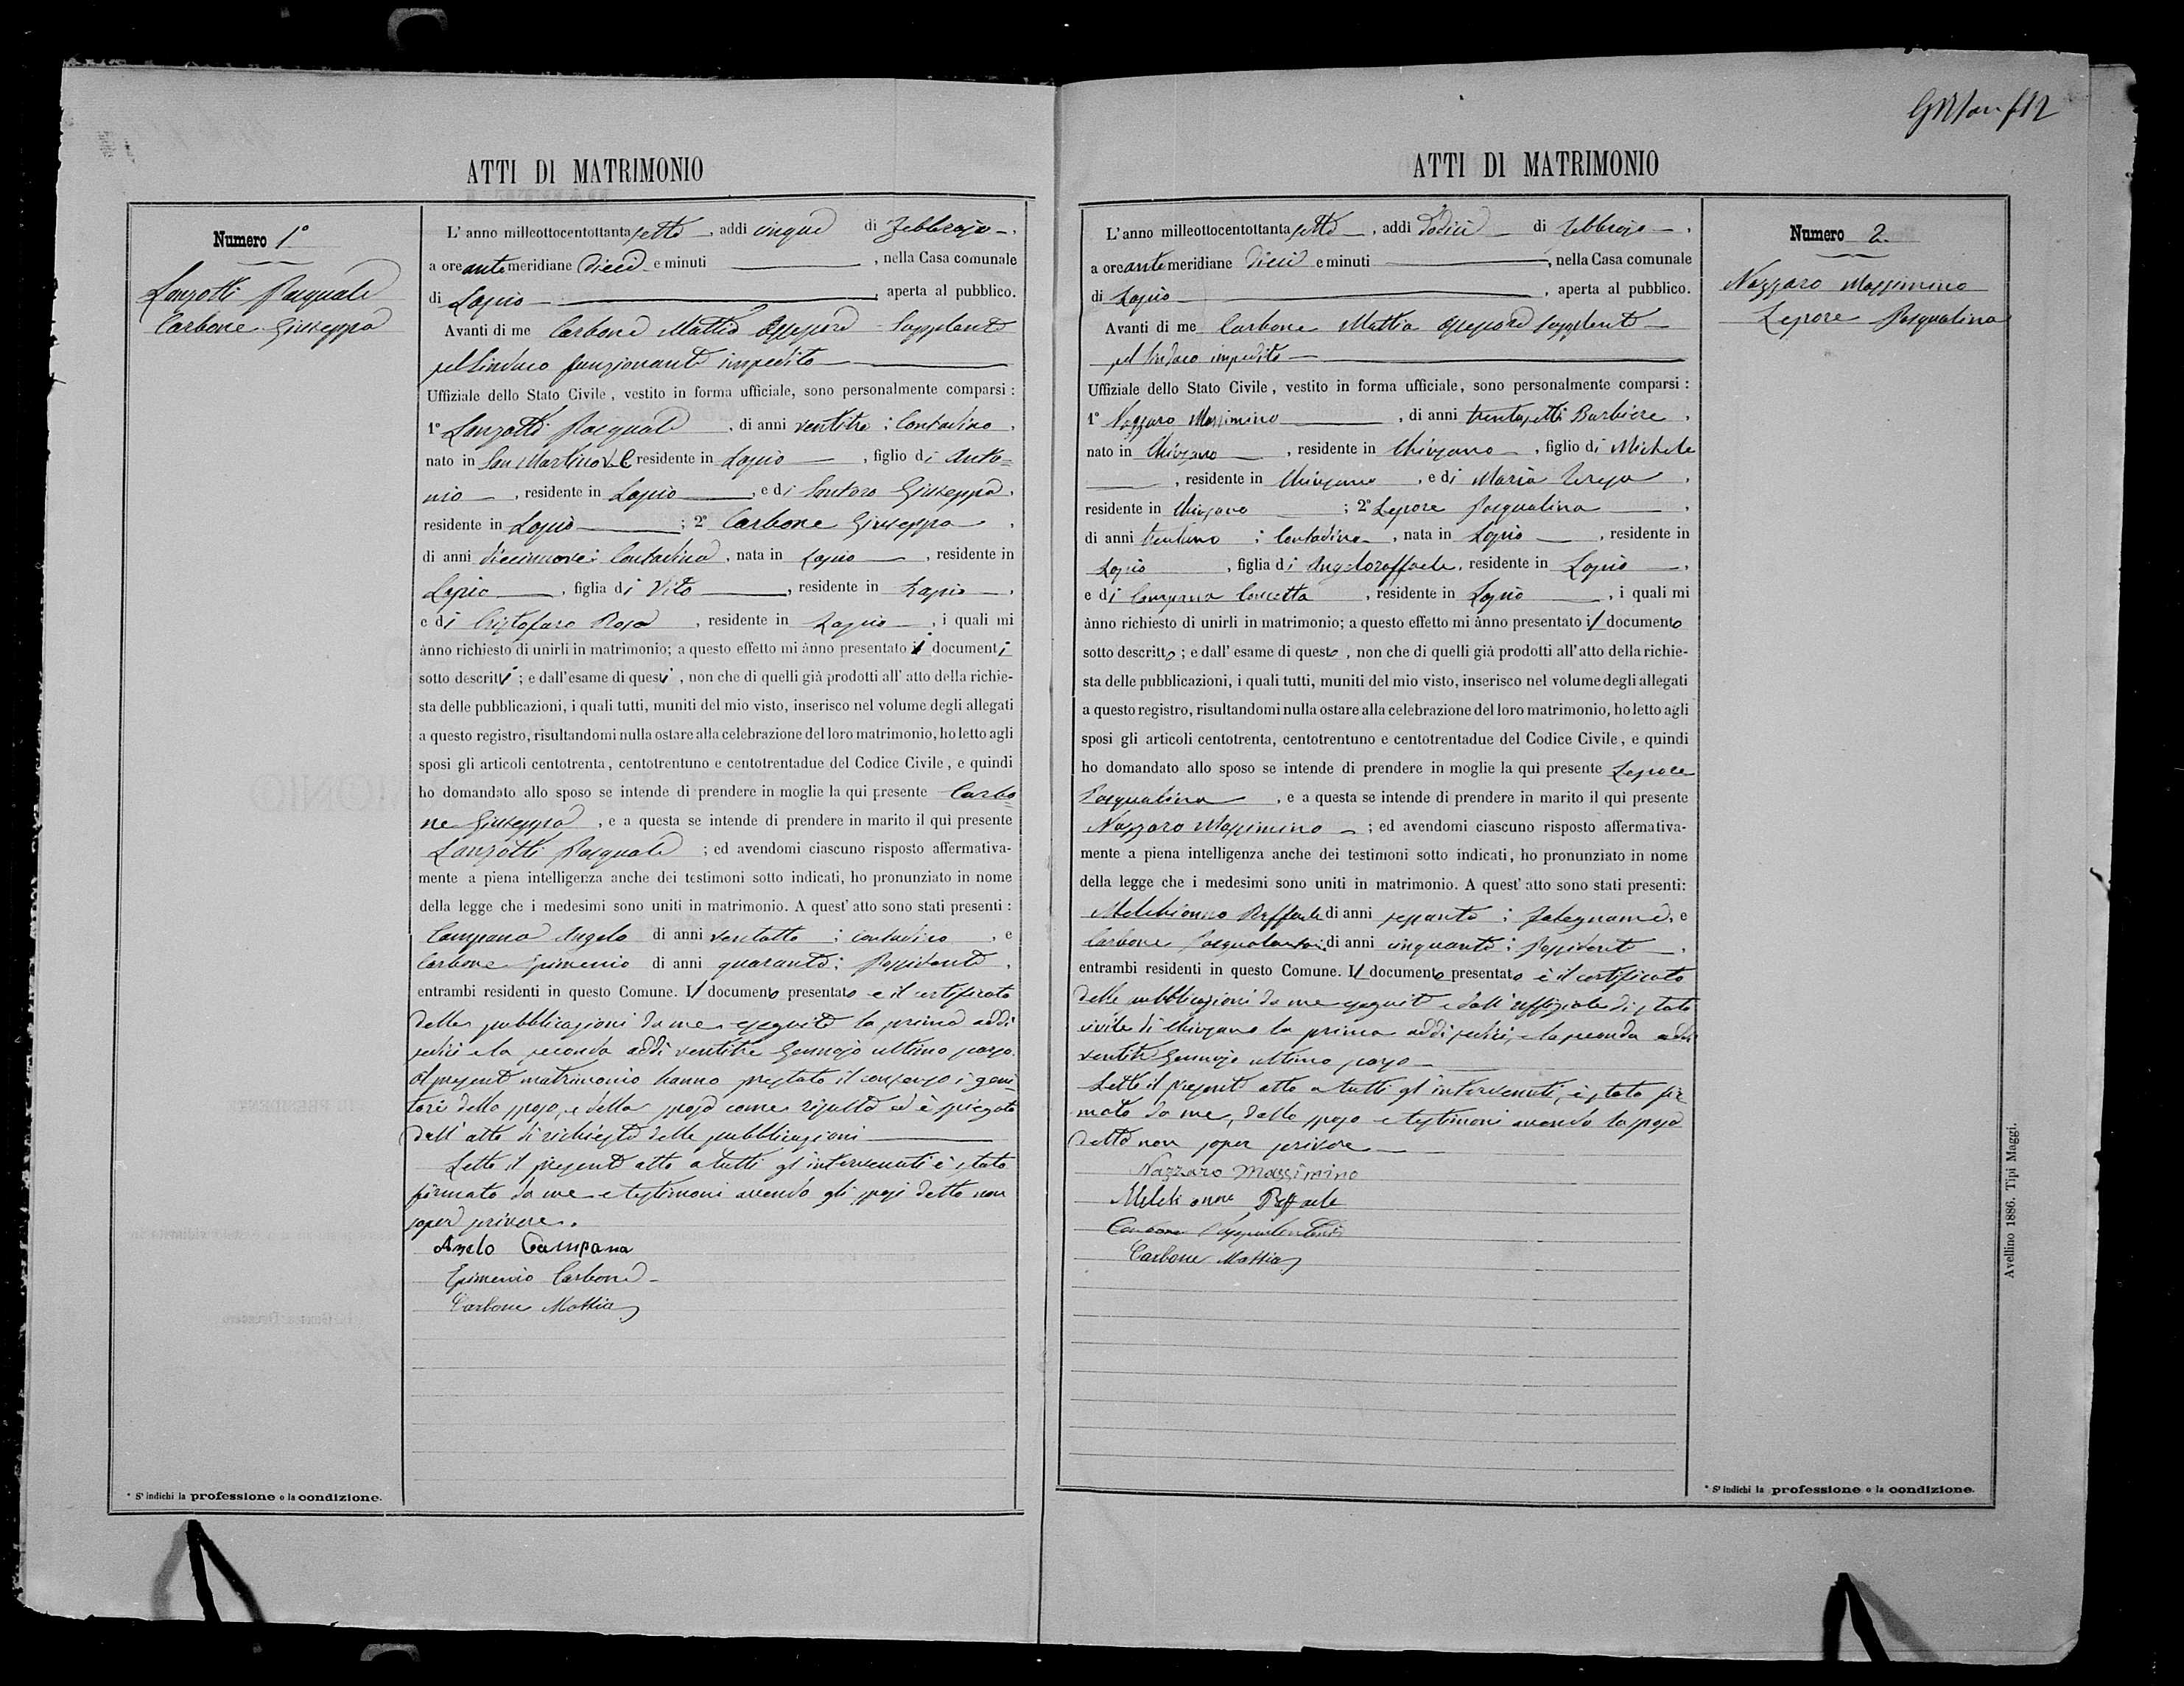 ATTI DI MATRIMONIO
Numero 1°
Lanzotti Pasquale
Carbone Giuseppa
L'anno milleottocentottantasette, addi cinque di Febbrajo,
a ore antemeridiane dieci e minuti, nella Casa comunale
di Lapio, aperta al pubblico.
Avanti di me Carbone Mattia Assessore Supplente
pel Sindaco funzionante impedito
Uffiziale dello Stato Civile, vestito in forma ufficiale, sono personalmente comparsi:
1° Lanzotti Pasquale, di anni ventitre; Contadino,
nato in San Martino V.C. residente in Lapio, figlio di Anto=
nio, residente in Lapio, e di Santoro Giuseppa,
residente in Lapio; 2° Carbone Giuseppa,
di anni diecinnove; Contadina, nata in Lapio, residente in
Lapio, figlia di Vito, residente in Lapio,
e di Cristofaro Rosa, residente in Lapio, i quali mi
ànno richiesto di unirli in matrimonio; a questo effetto mi ànno presentato i documenti
sotto descritti; e dall'esame di questi, non che di quelli già prodotti all'atto della richie-
sta delle pubblicazioni, i quali tutti, muniti del mio visto, inserisco nel volume degli allegati
a questo registro, risultandomi nulla ostare alla celebrazione del loro matrimonio, ho letto agli
sposi gli articoli centotrenta, centotrentuno e centotrentadue del Codice Civile, e quindi
ho domandato allo sposo se intende di prendere in moglie la qui presente Carbo=
ne Giuseppa, e a questa se intende di prendere in marito il qui presente
Lanzotti Pasquale; ed avendomi ciascuno risposto affermativa-
mente a piena intelligenza anche dei testimoni sotto indicati, ho pronunziato in nome
della legge che i medesimi sono uniti in matrimonio. A quest'atto sono stati presenti:
Campana Angelo di anni ventotto; contadino, e
Carbone Epimenio di anni quaranta; Possidente,
entrambi residenti in questo Comune. Il documento presentato è il certificato
delle pubblicazioni da me eseguite la prima addi
sedici e la seconda addi ventitre Gennajo ultimo scorso.
Al presente matrimonio hanno prestato il consenso i geni=
tori dello sposo, e della sposa come risulta ed è spiegato
dall'atto di richiesta delle pubblicazioni
Letto il presente atto a tutti gl'intervenuti è stato
firmato da me e testimoni avendo gli sposi detto non
saper scrivere.
Angelo Campana
Epimenio Carbone
Carbone Mattia
* Si indichi la professione o la condizione.
ATTI DI MATRIMONIO
Numero 2.
Nazzaro Massimino
Lepore Pasqualina
L'anno milleottocentottantasette, addi dodici di Febbrajo,
a ore antemeridiane dieci e minuti, nella Casa comunale
di Lapio, aperta al pubblico.
Avanti di me Carbone Mattia Assessore supplente
pel Sindaco impedito
Uffiziale dello Stato Civile, vestito in forma ufficiale, sono personalmente comparsi:
1° Nazzaro Massimino, di anni trentasette Barbiere,
nato in Chiusano, residente in Chiusano, figlio di Michele
, residente in Chiusano, e di Maria Teresa,
residente in Chiusano; 2° Lepore Pasqualina,
di anni trentuno; Contadina, nata in Lapio, residente in
Lapio, figlia di Angeloraffaele, residente in Lapio,
e di Campana Concetta, residente in Lapio, i quali mi
ànno richiesto di unirli in matrimonio; a questo effetto mi ànno presentato il documento
sotto descritto; e dall'esame di questo, non che di quelli già prodotti all'atto della richie-
sta delle pubblicazioni, i quali tutti, muniti del mio visto, inserisco nel volume degli allegati
a questo registro, risultandomi nulla ostare alla celebrazione del loro matrimonio, ho letto agli
sposi gli articoli centotrenta, centotrentuno e centotrentadue del Codice Civile, e quindi
ho domandato allo sposo se intende di prendere in moglie la qui presente Lepore
Pasqualina, e a questa se intende di prendere in marito il qui presente
Nazzaro Massimino; ed avendomi ciascuno risposto affermativa-
mente a piena intelligenza anche dei testimoni sotto indicati, ho pronunziato in nome
della legge che i medesimi sono uniti in matrimonio. A quest'atto sono stati presenti:
Melchionno Raffaele di anni sessanta; Falegname, e
Carbone Pasqualantonio di anni cinquanta; Possidente,
entrambi residenti in questo Comune. Il documento presentato è il certificato
delle pubblicazioni da me eseguite e dall'uffiziale di stato
civile di Chiusano la prima addi sedici, e la seconda addi
ventitre Gennajo ultimo scorso
Letto il presente atto a tutti gl'intervenuti, è stato fir
mato da me, dallo sposo e testimoni avendo la sposa
detto non saper scrivere
Nazzaro Massimino
Melchionno Raffaele
Carbone Pasqualantonio
Carbone Mattia
* Si indichi la professione o la condizione.
Avellino 1886. Tipi Maggi.